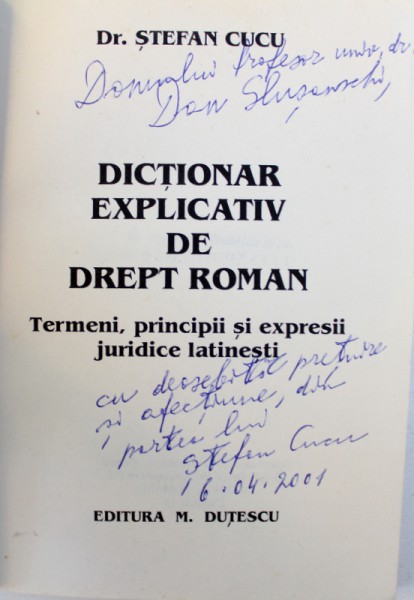 Dr. ȘTEFAN CUCU
Domnului Profesor univ. dr.
Dan Slușanschi,
DICȚIONAR
EXPLICATIV
DE
DREPT ROMAN
Termeni, principii și expresii
juridice latinești
cu deosebită prețuire
și afecțiune, din
partea lui
Ștefan Cucu
6.04.2001
EDITURA M. DUȚESCU